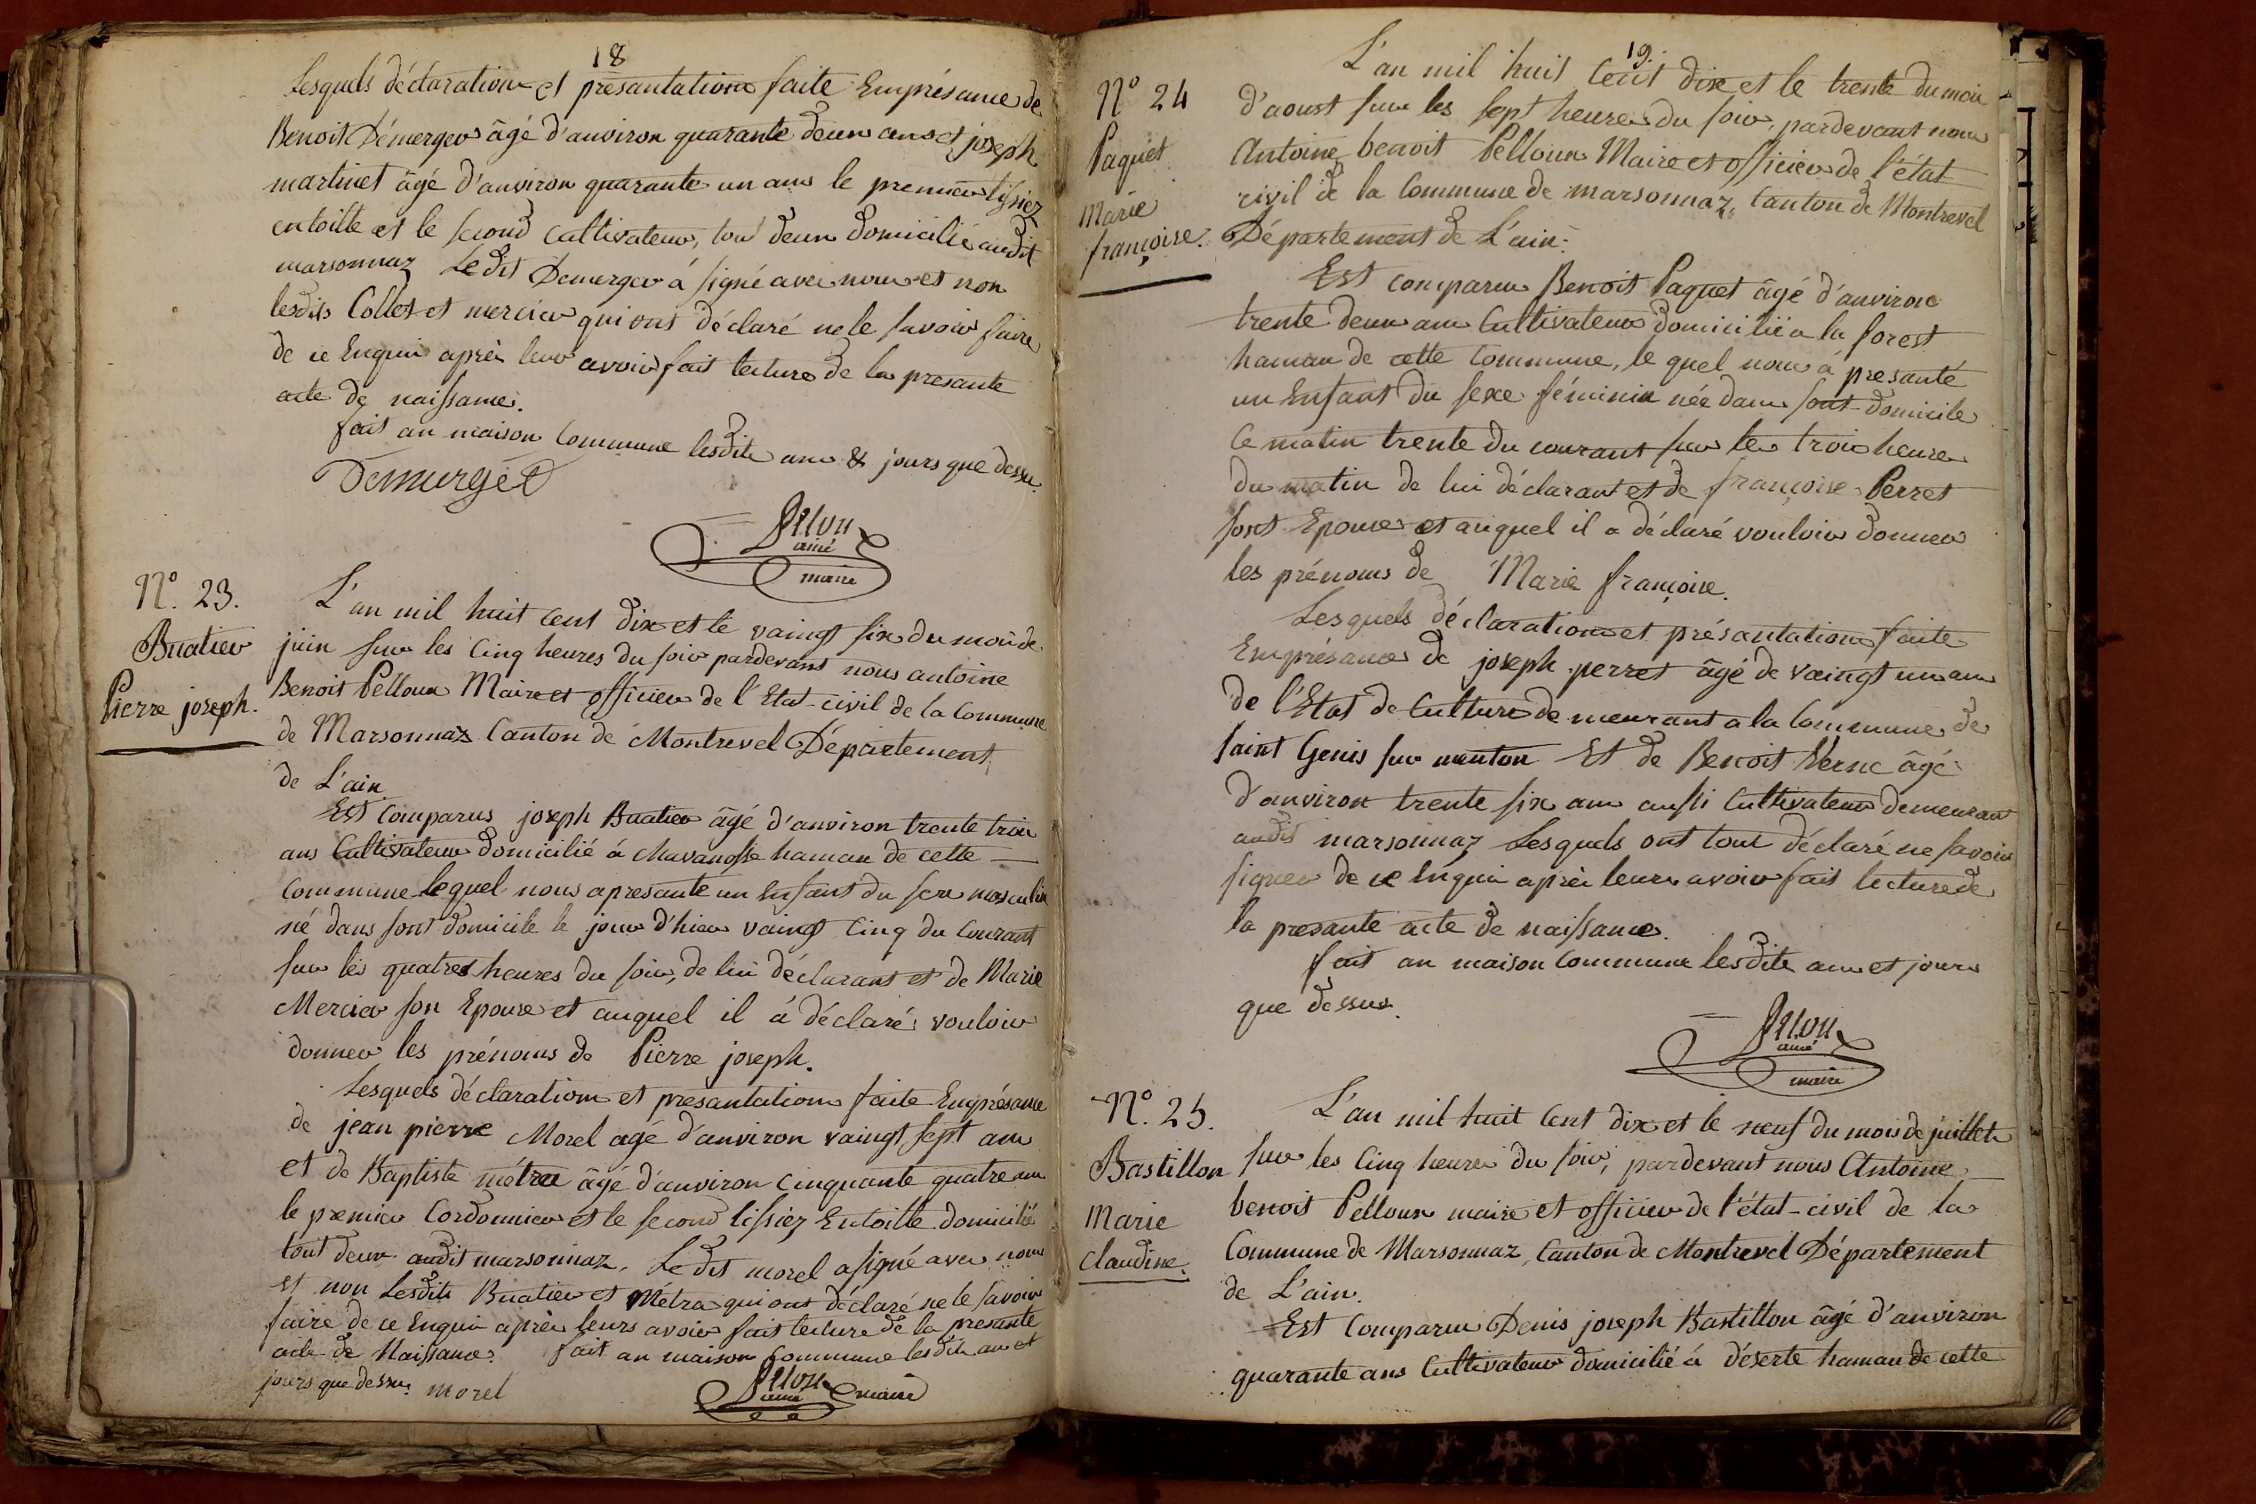 18
Lesquels déclaration et présantation faite Emprésance de
Benoit Démerger âgé d'anviron quarante deux ans et joseph
martinet âgé d'anviron quarante un ans le premier tissiez
entoille et le second cultivateur, tou deux domicilié audit
marsonnaz Ledit Demerger á signé avec nous et non
lesdits Collet et mercier qui ont déclaré ne le savoir faire
de ce Enquis après leur avoir fait lecture de la presante
acte de naissance.
fait an maison Commune lesdits ans & jours que dessu.
Demurger
Pelou
ainé
maire
N°. 23.
Buatier
Pierre joseph.
L'an mil huit cent dix et le vaingt six du mois de
juin sur les Cinq heures du soir pardevant nous antoine
Benoit Pelloux Maire et officier de l'Etat-civil de la Commune
de Marsonnaz Canton de Montrevel Département
de L'ain.
Est comparus joseph Buatier âgé d'anviron trente trois
ans Cultivateur domicilié á chavanosse hamau de cette
Commune lequel nous a presante un Enfant du sexe masculin
né dans sont domicile le jour d'hier vaingt Cinq du Courant
sur les quatres heures du soir, de lui déclarant et de Marie
Mercier son Epouse et auquel il á déclaré vouloir
donner les prénoms de Pierre joseph.
Lesquels déclaration et presantation faite Emprésance
de jean pierre Morel agé d'anviron vaingt sept ans
et de Baptiste métra âgé d'anviron Cinquante quatre ans
le premier Cordonnier et le second tissiez Entoille domicilié
tout deux audit marsonnaz. Ledit morel a signé avec nous
et non Lesdits Buatier et Métra qui ont déclaré ne le savoir
faire de ce Enquis après leurs avoir fait lecture de la presante
acte de Naissance. fait an maison Commune lesdits ans et
jours que dessu. morel
Pelou
ainé maire
19
N° 24
Paquet
Marie
françoise.
L'an mil huit Cent dix et le trente du mois
d'aoust sur les sept heures du soir, pardevant nous
Antoine benoit Pelloux Maire et officier de l'état
civil de la Commune de marsonnaz, Canton de Montrevel
Département de L'ain.
Est comparu Benoit Paquet âgé d'anviron
trente deux ans Cultivateur domicilié a la forest
hamau de cette Commune, le quel nous á presanté
un Enfant du sexe féminin née dans sont domicile
Ce matin trente du courant sur les trois heures
du matin de lui déclarant et de françoise Perret
sont Epouse et auquel il a déclaré vouloir donner
les prénoms de Marie françoise.
Lesquels déclaration et présantation faite
Emprésance de joseph perret âgé de vaingt un ans
de l'Etat de Culture demeurant a la Commune de
saint Genis sur menton Et de Benoit Verne âgé
d'anviron trente six ans aussi Cultivateur demeurant
audit marsonnaz Lesquels ont tout déclaré ne savoir
signer de ce Enquis après leurs avoir fait lecture de
la presante acte de naissance.
fait an maison Commune lesdits ans et jours
que dessus.
Pelou
ainé
maire
N°. 25.
Bastillon
Marie
Claudine.
L'an mil huit Cent dix et le neuf du mois de juillet
sur les Cinq heures du soir, pardevant nous Antoine
benoit Pelloux maire et officier de l'état-civil de la
Commune de Marsonnaz, Canton de Montrevel Département
de L'ain.
Est Comparu Denis joseph Bastillon âgé d'anviron
quarante ans Cultivateur domicilié á déserte hamau de cette